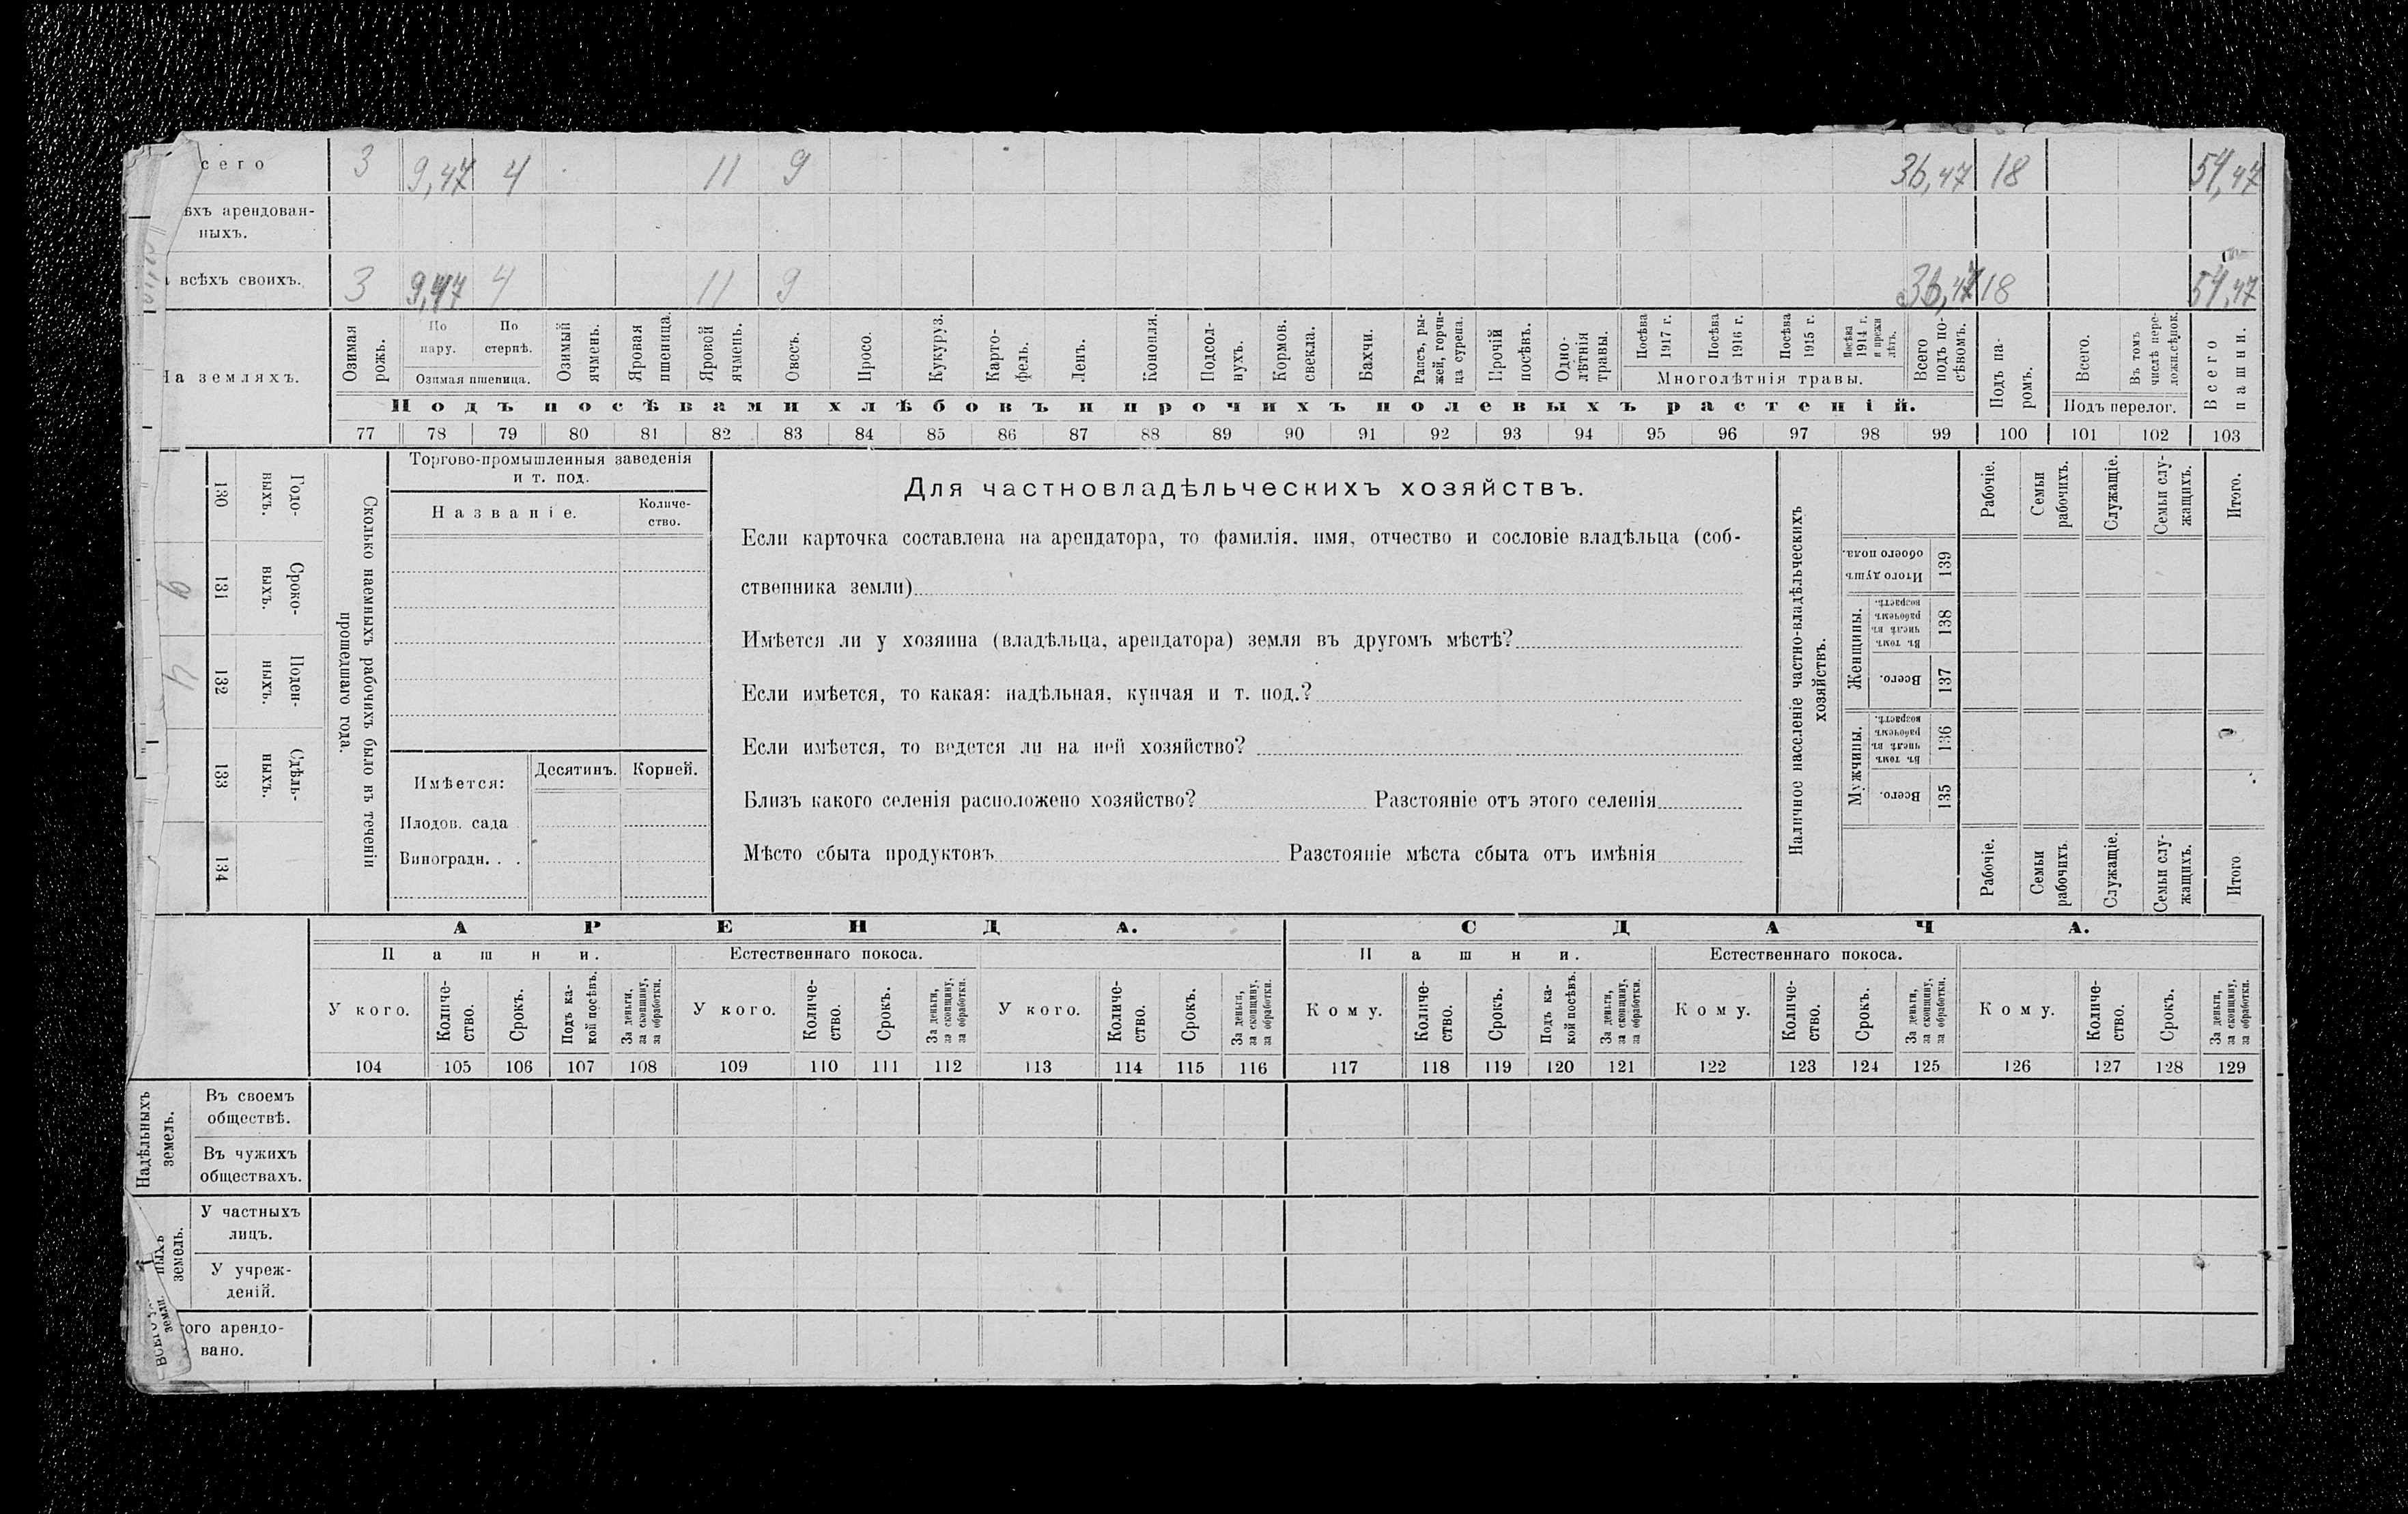 сего 3 9,47 4 11 9 36,47 18 54,47
ѣхъ арендован-
ныхъ.
всѣхъ своихъ. 3 9,47 4 11 9 36,47 18 54,47
На земляхъ.
Озимая рожь.
По пару.
По стернѣ.
Озимая пшеница.
Озимый ячмень.
Яровая пшеница.
Яровой ячмень.
Овесъ.
Просо.
Кукуруз.
Карто-
фель.
Ленъ.
Конопля.
Подсол-
нухъ.
Кормов. свекла.
Бахчи.
Рапсъ, ры-
жей, горчи-
ца сурепа.
Прочій посѣвъ.
Одно-
лѣтнія травы.
Посѣва 1917 г.
Посѣва 1916 г.
Посѣва 1915 г.
Посѣва 1914 г. и прежн лѣтъ.
Многолѣтнія травы.
Всего подъ по-
сѣвомъ.
Подъ посѣвами хлѣбовъ и прочихъ полевыхъ растеній.
Подъ па-
ромъ.
Всего.
Въ томъ числѣ пере-
ложн.сѣнок.
Подъ перелог.
Всего пашни.
77 78 79 80 81 82 83 84 85 86 87 88 89 90 91 92 93 94 95 96 97 98 99 100 101 102 103
9
4
130 Годо-
выхъ.
131 Сроко-
выхъ.
132 Поден-
ныхъ.
133 Сдѣль-
ныхъ.
134
Сколько наемныхъ рабочихъ было въ теченіи
прошедшаго года.
Торгово-промышленныя заведенія
и т. под.
Названіе.
Количе-
ство.
Имѣется:
Десятинъ. Корней.
Плодов. сада
Виноградн. . .
Для частновладѣльческихъ хозяйствъ.
Если карточка составлена на арендатора, то фамилія, имя, отчество и сословіе владѣльца (соб-
ственника земли)
Имѣется ли у хозяина (владѣльца, арендатора) земля въ другомъ мѣстѣ?
Если имѣется, то какая: надѣльная, купчая и т. под.?
Если имѣется, то ведется ли на ней хозяйство?
Близъ какого селенія расположено хозяйство? Разстояніе отъ этого селенія
Мѣсто сбыта продуктовъ Разстояніе мѣста сбыта отъ имѣнія
Наличное населеніе частно-владѣльческихъ
хозяйствъ.
Рабочіе.
Семьи рабочихъ.
Служащіе.
Семьи слу-
жащихъ.
Итого.
Итого душъ обоего пола. 139
Женщины.
Въ томъ числѣ въ рабочемъ возрастѣ. 138
Всего. 137
Мужчины.
Въ томъ числѣ въ рабочемъ возрастѣ. 136
Всего. 135
Рабочіе.
Семьи рабочихъ
Служащіе.
Семьи слу-
жащихъ.
Итого
АРЕНДА. СДАЧА.
Пашни. Естественнаго покоса. Пашни. Естественнаго покоса.
У кого.
Количе-
ство.
Срокъ.
Подъ ка-
кой посѣвъ.
За деньги,
за скопщину,
за обработки.
У кого.
Количе-
ство.
Срокъ.
За деньги,
за скопщину,
за обработки.
У кого.
Количе-
ство.
Срокъ.
За деньги,
за скопщину,
за обработки.
Кому.
Количе-
ство.
Срокъ.
Подъ ка-
кой посѣвъ.
За деньги,
за скопщину,
за обработки.
Кому.
Количе-
ство.
Срокъ.
За деньги,
за скопщину,
за обработки.
Кому.
Количе-
ство.
Срокъ.
За деньги,
за скопщину,
за обработки.
104 105 106 107 108 109 110 111 112 113 114 115 116 117 118 119 120 121 122 123 124 125 126 127 128 129
Надѣльныхъ
земель.
Въ своемъ
обществѣ.
Въ чужихъ
обществахъ.
ныхъ
земель.
У частныхъ
лицъ.
У учреж-
деній.
того арендо-
вано.
земли.